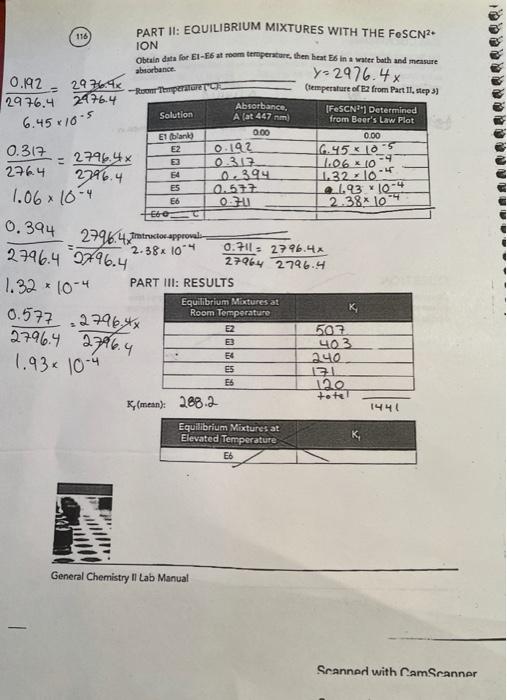 116
PART II: EQUILIBRIUM MIXTURES WITH THE FeSCN²⁺
ION
Obtain data for E1-E6 at room temperature, then heat E6 in a water bath and measure
absorbance.
y=2976.4x
Room Temperature (°C):
(temperature of E2 from Part II, step 3)
0.192 = 2976.4x
2976.4 2976.4
6.45 x 10⁻⁵
0.317 = 2796.4x
276.4 2796.4
1.06 x 10⁻⁴
0.394 = 2796.4x
2796.4 2796.4
1.32 x 10⁻⁴
0.577 = 2796.4x
2796.4 2796.4
1.93 x 10⁻⁴
Solution Absorbance, A (at 447 nm) [FeSCN²⁺] Determined from Beer's Law Plot
E1 (blank) 0.00 0.00
E2 0.192 6.45 x 10⁻⁵
E3 0.317 1.06 x 10⁻⁴
E4 0.394 1.32 x 10⁻⁴
E5 0.577 1.93 x 10⁻⁴
E6 0.711 2.38 x 10⁻⁴
E6@ °C
Instructor approval:
2.38 x 10⁻⁴
0.711 = 2796.4x
27964 2796.4
PART III: RESULTS
Equilibrium Mixtures at Room Temperature Kf
E2 507
E3 403
E4 240
E5 171
E6 120
total
1441
Kf (mean): 288.2
Equilibrium Mixtures at Elevated Temperature Kf
E6
General Chemistry II Lab Manual
Scanned with CamScanner